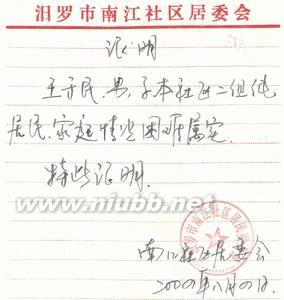 汨罗市南江社区居委会
证明
王子民，男，子本社区二组他
居民，家庭情况困难属实.
特此证明.
一扫网
www.niubb.net
汨罗市南江社区居民
南江社区居委会
2009年八月四日